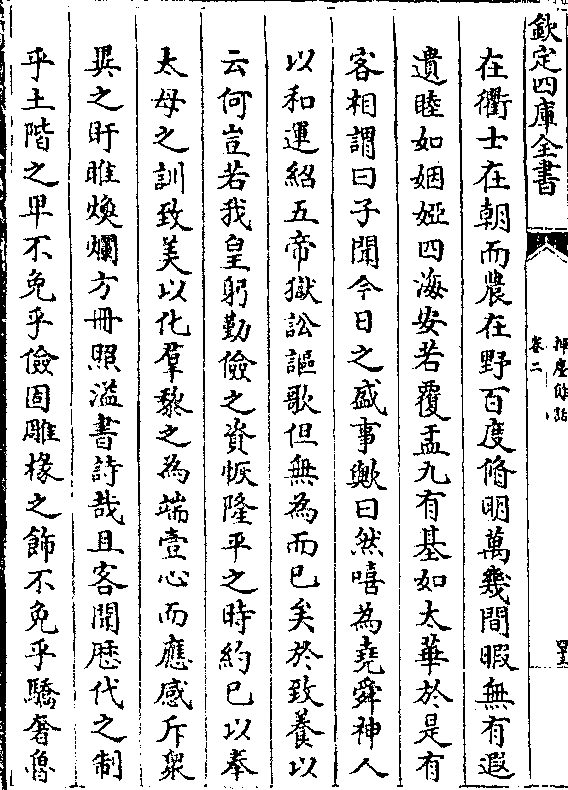 欽定四庫全書
揮麈餘話
卷二
在衢士在朝而農在野百度脩明萬幾間暇無有遐
遺睦如姻婭四海安若覆盂九有基如太華於是有
客相謂曰子聞今日之盛事歟曰然嘻為堯舜神人
以和運紹五帝獄訟謳歌但無為而已矣於致養以
云何豈若我皇躬勤儉之資恢隆平之時約已以奉
太母之訓致美以化羣黎之為端壹心而應感斥衆
異之盱睢煥爛方冊照溢書詩哉且客聞厯代之制
乎土階之卑不免乎儉固雕椽之飾不免乎驕奢魯